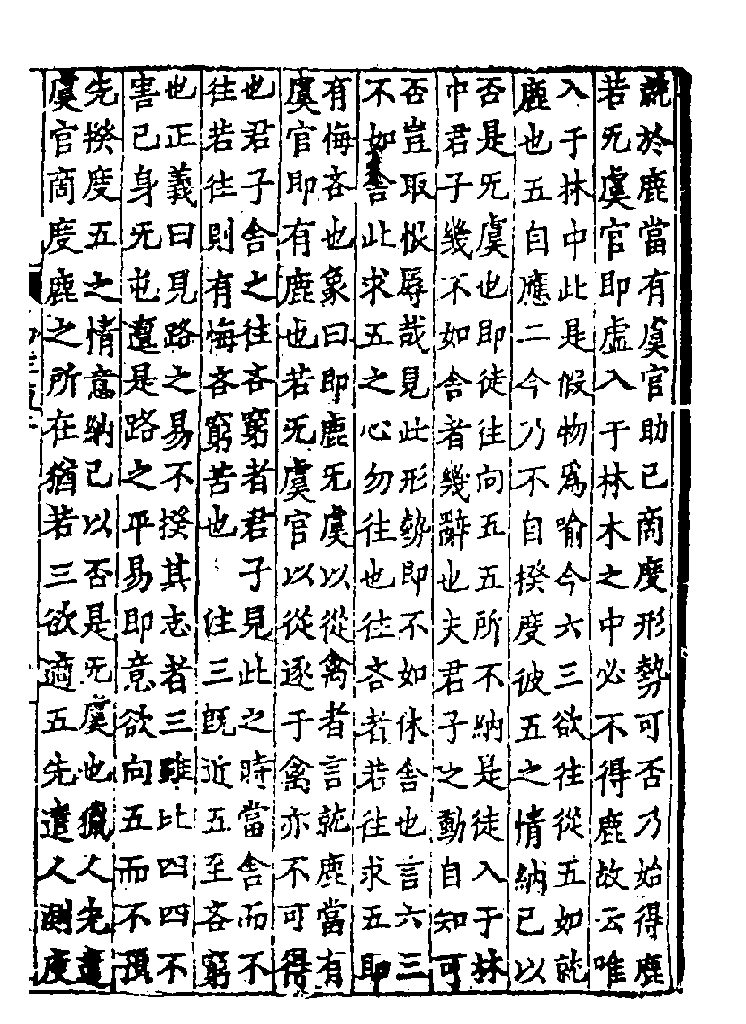 就於鹿當有虞官助已商度形勢可否乃始得鹿
若旡虞官即虛入于林木之中必不得鹿故云唯
入于林中此是假物爲喻今六三欲往從五如就
鹿也五自應二今乃不自揆度彼五之情納已以
否是旡虞也即徒往向五五所不納是徒入于林
中君子幾不如舍者幾辭也夫君子之動自知可
否豈取恨辱哉見此形勢即不如休舍也言六三
不如舍此求五之心勿往也往吝者若往求五即
有悔吝也象曰即鹿旡虞以從禽者言就鹿當有
虞官即有鹿也若旡虞官以從逐于禽亦不可得
也君子舍之往吝窮者君子見此之時當舍而不
往若往則有悔吝窮苦也　注三旣近五至吝窮
也正義曰見路之易不揆其志者三雖比四四不
害已身旡屯邅是路之平易即意欲向五而不預
先揆度五之情意納已以否是旡虞也獵人先遣
虞官商度鹿之所在猶若三欲適五先遣人測度